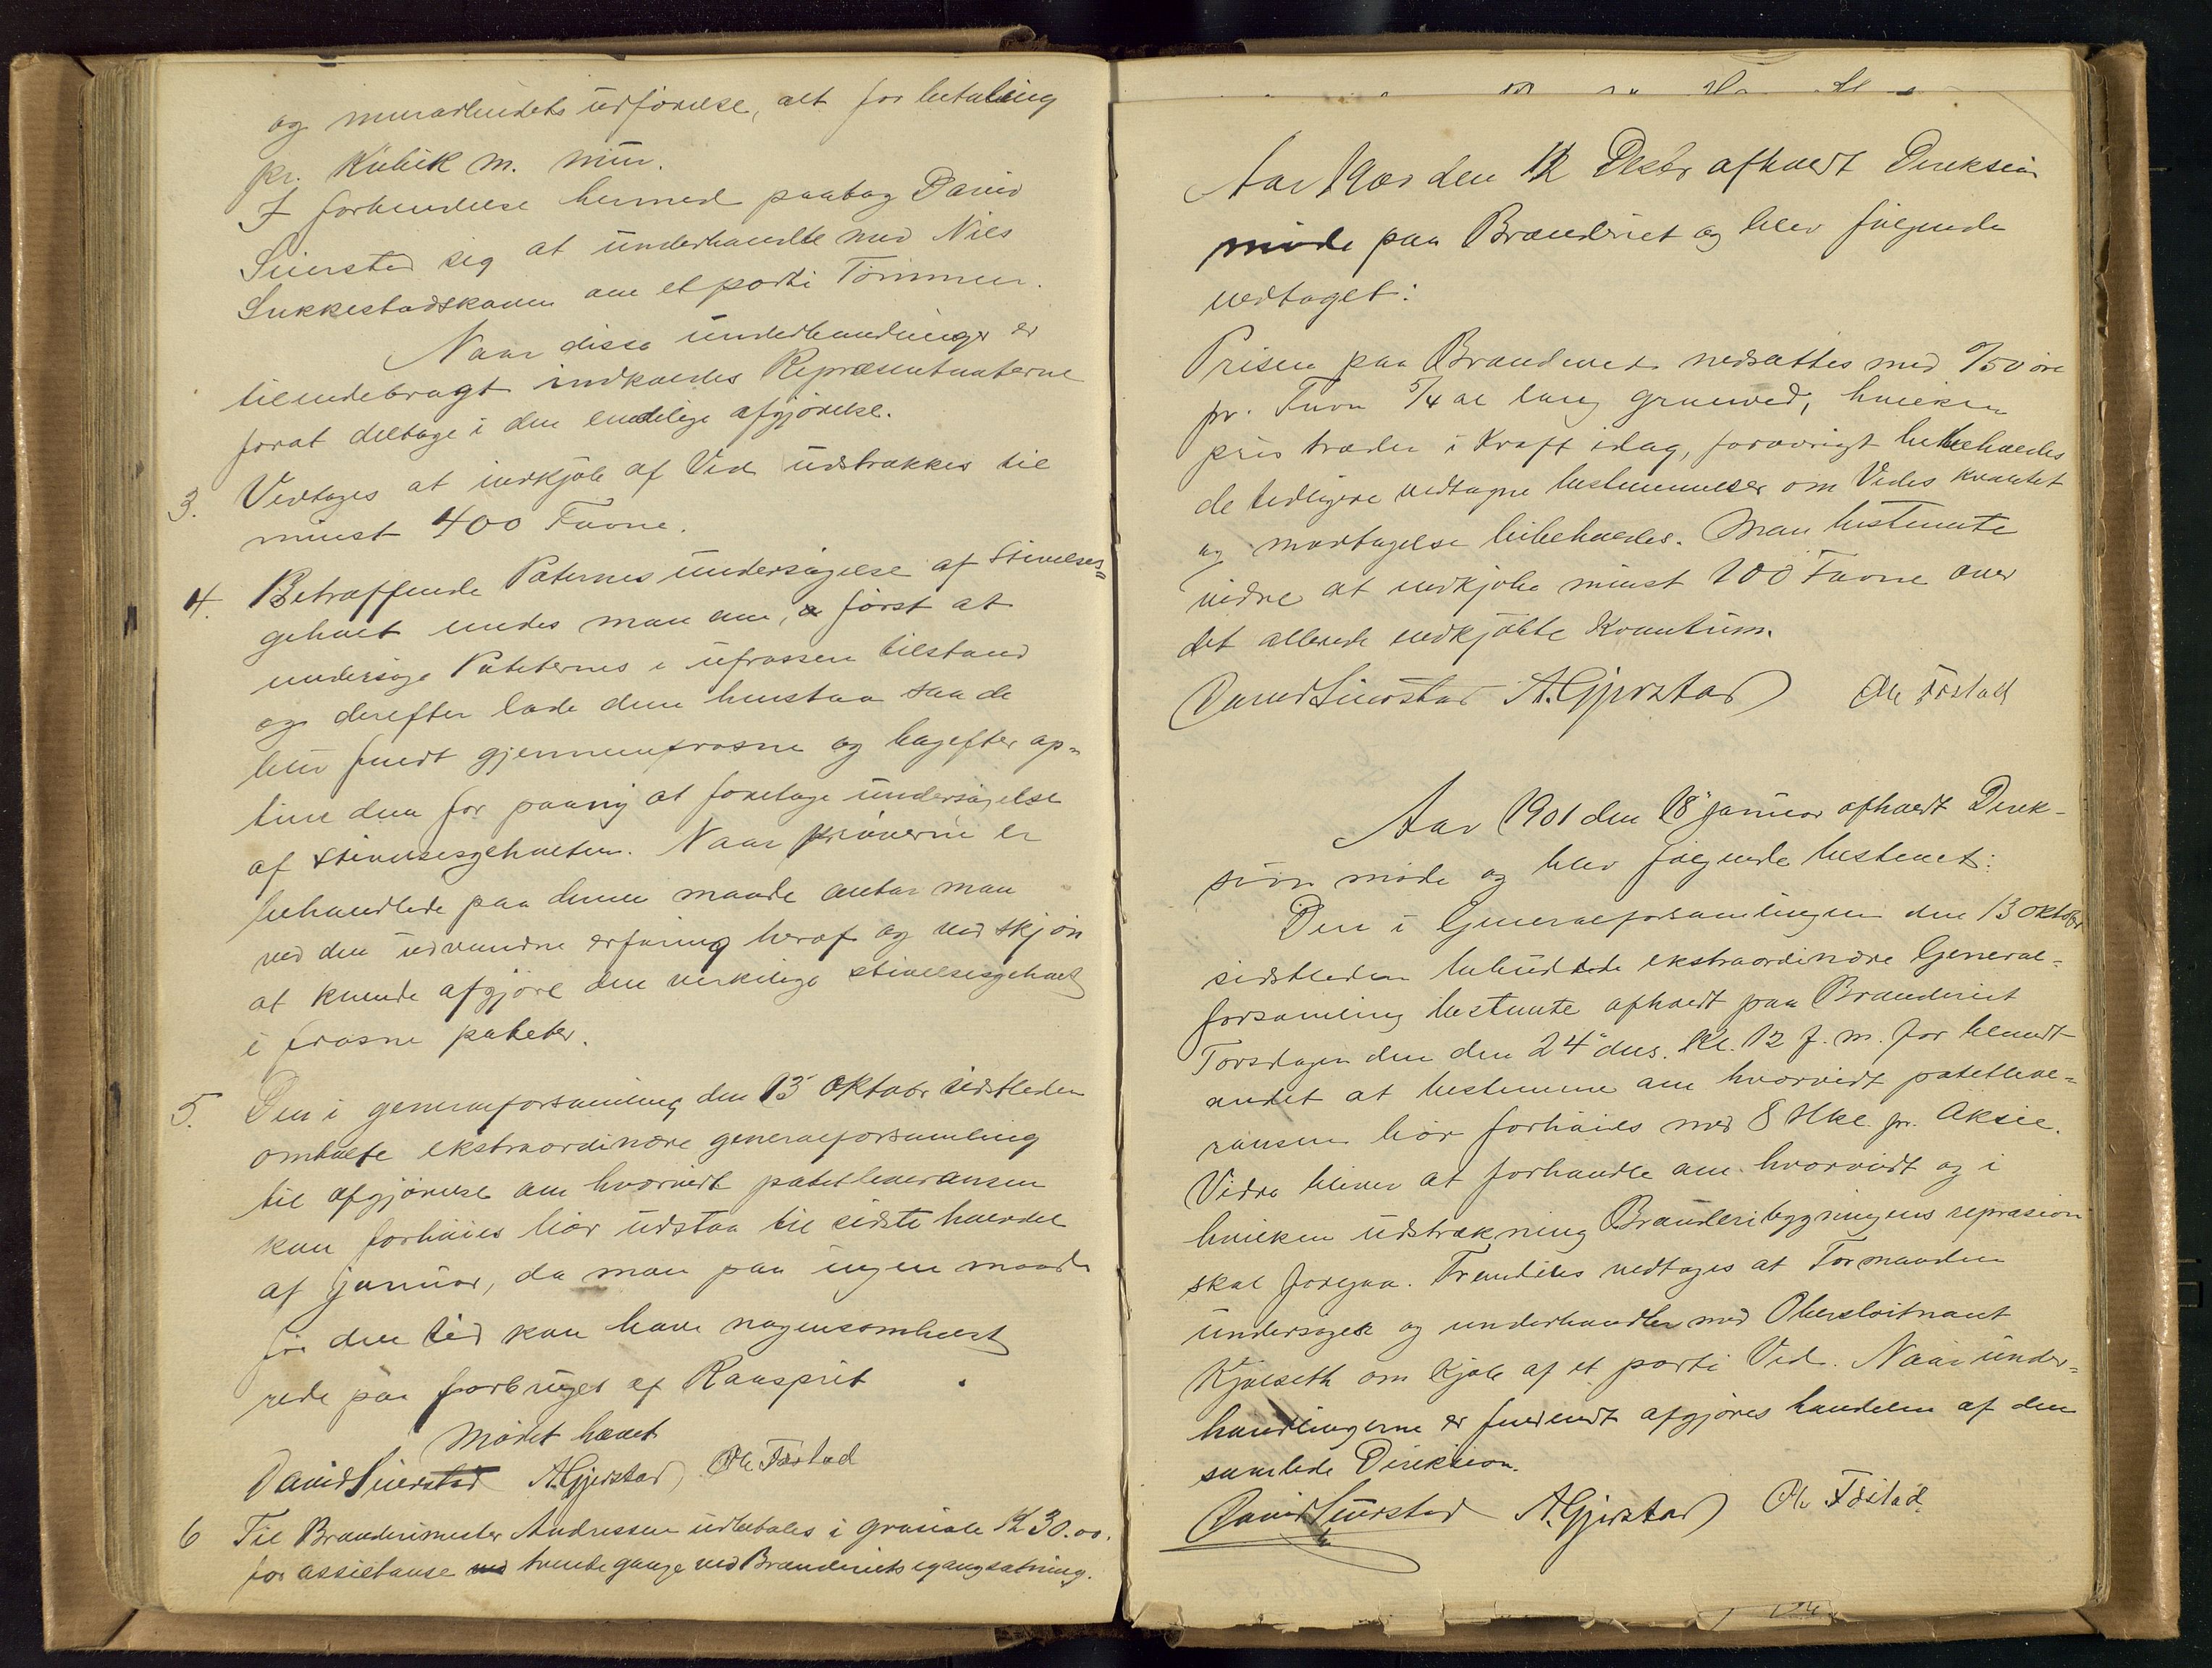 og murarbeidets udførelse, alt for betaling
pr. Kubik m. mur.
I forbindelse hermed paatog David
Sierstad sig at underhandle med Nils
Sukkestadskaun om et parti Tømmer.
Naar disse underhandlinger er
tilendebragt indkaldes Repræsentanterne
forat deltage i den endelige afgjørelse.
3. Vedtages at indkjøb af Ved udstrækkes til
minst 400 Favne.
4. Betræffende Poternes undersøgelse af Stivelses-
gehalt enedes man om, først at
undersøge Poteternes i ufrossen tilstand
og derefter lade dem henstaa saa de
blir fuldt gjennemfrosne og bagefter op-
tine dem for paany at foretage undersøgelse
af stivelsesgehalten. Naar prøverne er
behandlede paa denne maade antar man
ved den udvundne erfaring heraf og ved skjøn
at kunde afgjøre den verkelige stivelsesgehalt
i frosne poteter.
5. Den i generalforsamling den 13 oktobr sidstleden
omtalte ekstraordinære generalforsamling
til afgjørelse om hvorvidt potetleveransen
kan forhøies bør udstaa til sidste halvdel
af januar, da man paa ingen maade
før den tid kan have nogensomhelst
rede paa forbruget af Raasprit
Mødet hævet
David Sierstad A. Gjerstad Ole Fæstad
6 Til Brænderimester Andressen udbetales i grasiale K 30.00.
for assistanse tvende gange ved Brænderiets igangsætning.
Aar 1900 den 12 Desbr afholdt Direksion
møde paa Brænderiet og blev følgende
vedtaget:
Prisen paa Brændeved nedsættes med 0/50 øre
pr. Favn 5/4 al lang granved, hvilken
pris træder i Kraft idag, forøvrigt bibeholdes
de tidligere vedtagne bestemmelser om Veds kvantet
og modtagelse bibeholdes. Man bestemte
vidre at indkjøbe minst 200 Favne over
det allerede indkjøbte Kvantum.
David Sierstad A. Gjerstad Ole Fæstad
Aar 1901 den 18 januar afholdt Direk-
sion møde og blev følgende bestemt:
Den i Generalforsamlingen den 13 oktobr
sidstleden bebudede ekstraordinære General-
forsamling bestemte afholdt paa Brænderiet
Torsdagen den den 24 ds. Kl. 12 f. m. for blandt
andet at bestemme om hvorvidt potetleve-
ransen bør forhøies med 8 Hkl. pr. Aksie.
Vidre bliver at forhandle om hvorvidt og i
hvilken udstrækning Brænderibygningens reprasion
skal foregaa. Fremdeles vedtages at Formanden
undersøger og underhandler med Oberstloitnant
Kjølseth om kjøb af et parti Ved. Naar under-
handlingerne er fuldendt afgjøres handelen af den
samlede Direksion.
David Sierstad A. Gjerstad Ole Fæstad